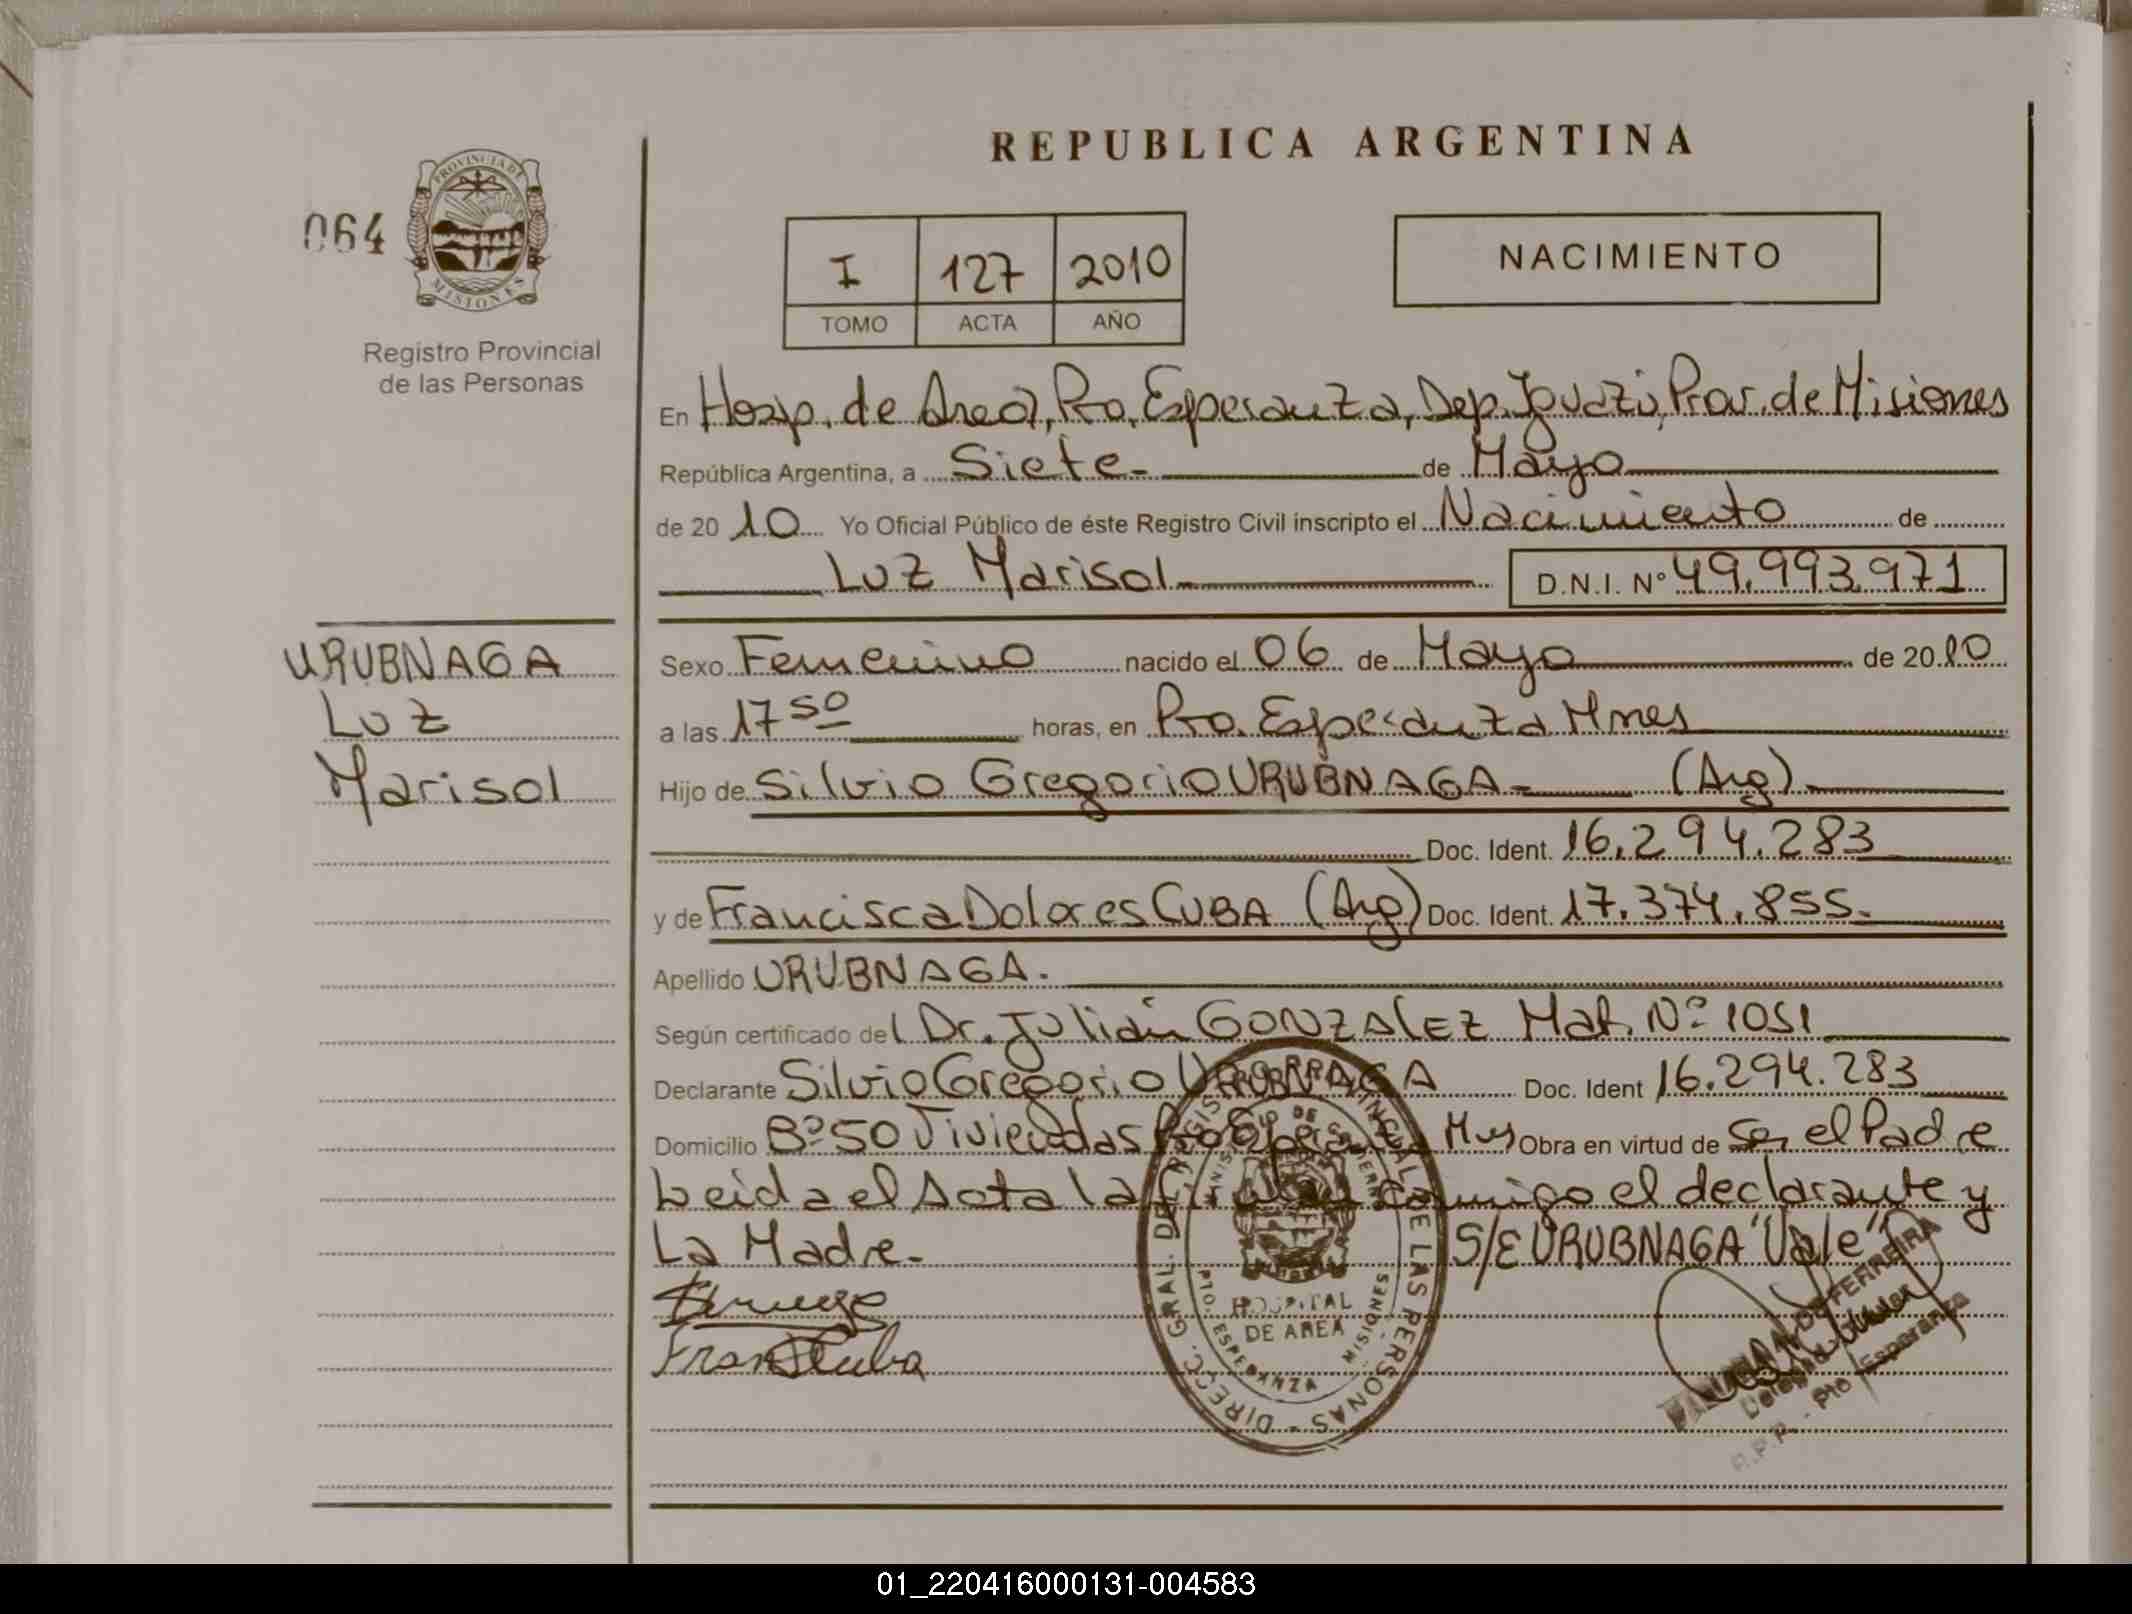 REPUBLICA ARGENTINA
064
PROVINCIA DE
MISIONES
Registro Provincial
de las Personas
I 127 2010
TOMO ACTA AÑO
NACIMIENTO
En Hosp. de Area, Pto. Esperanza, Dep. Iguazú, Prov. de Misiones
República Argentina, a Siete.- de Mayo
de 20 10 Yo Oficial Público de éste Registro Civil inscripto el Nacimiento de
Luz Marisol.- D.N.I. Nº 49.993.971
URUBNAGA
Luz
Marisol
Sexo Femenino nacido el 06 de Mayo de 20 10
a las 17 50 horas, en Pto. Esperanza Mnes
Hijo de Silvio Gregorio URUBNAGA.- (Arg).
Doc. Ident. 16.294.283
y de Francisca Dolores CUBA (Arg) Doc. Ident. 17.374.855.
Apellido URUBNAGA.
Según certificado del Dr. Julián GONZALEZ Mat. Nº 1051
Declarante Silvio Gregorio URUBNAGA Doc. Ident 16.294.283
Domicilio Bº 50 Viviendas Pto Esperanza Mns Obra en virtud de Ser el Padre
Leida el Acta la firman conmigo el declarante y
La Madre.- S/E URUBNAGA "Vale"
Fran Cuba
DIRECC. GRAL. DEL REGISTRO PROVINCIAL DE LAS PERSONAS -
MINISTERIO DE GOBIERNO
HOSPITAL
DE AREA
PTO. ESPERANZA MISIONES
DE FERREIRA
Delegada Titular
R.P.P. - Pto Esperanza
01_220416000131-004583